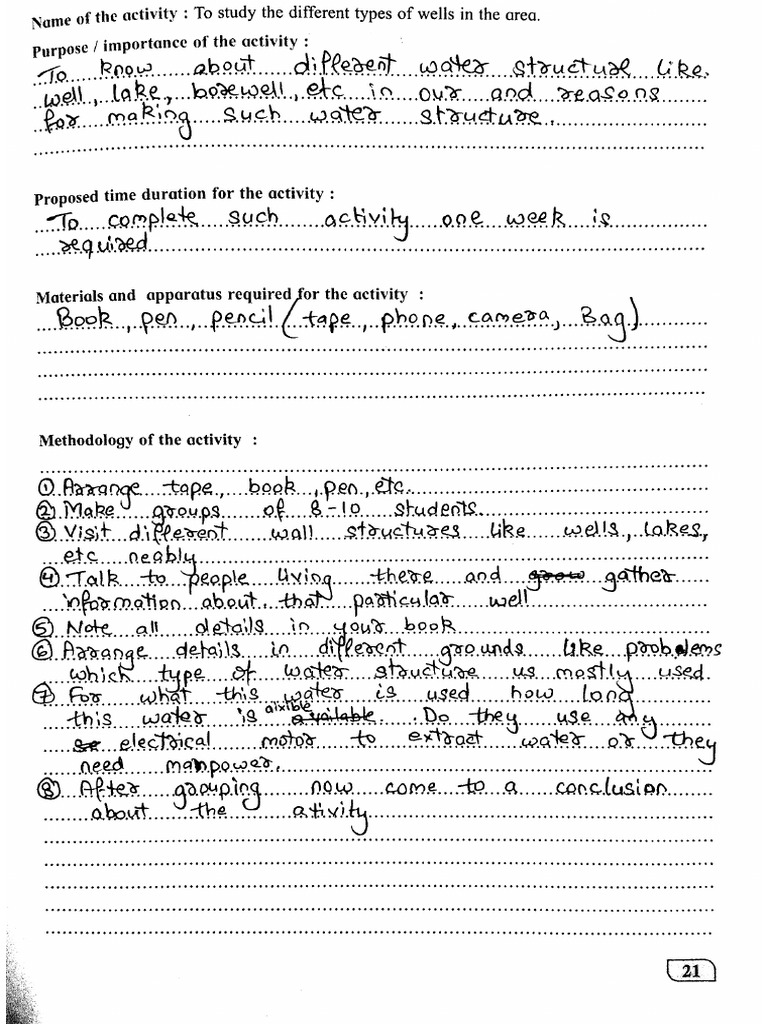 Name of the activity : To study the different types of wells in the area.
Purpose / importance of the activity :
To know about different water structure like
well, lake, borewell, etc in our and reasons
for making such water structure.
Proposed time duration for the activity :
To complete such activity one week is
required
Materials and apparatus required for the activity :
Book, pen, pencil (tape, phone, camera, Bag)
Methodology of the activity :
① Arrange tape, book, pen, etc.
② Make groups of 8-10 students.
③ Visit different wall structures like wells, lakes,
etc neably
④ Talk to people living there and grow gather
information about that particular well
⑤ Note all details in your book
⑥ Arrange details in different grounds like problems
which type of water structure us mostly used.
⑦ For what this water is used how long
this water is available aixible. Do they use any
se electrical motor to extract water or they
need manpower.
⑧ After grouping now come to a conclusion
about the ativity
21